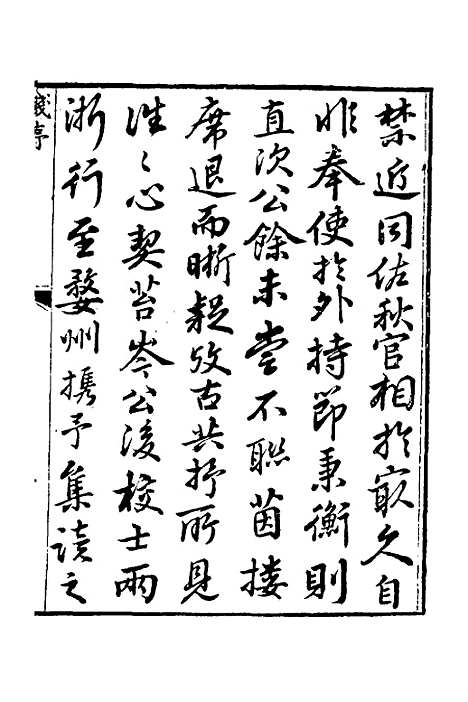 禁近同佐秋官相於最久自
非奉使於外持節秉衡則
直次公餘未嘗不聯茵接
席退而晰疑攷古共抒所見
往〻心契苔岑公後校士兩
浙行至婺州攜予集讀之